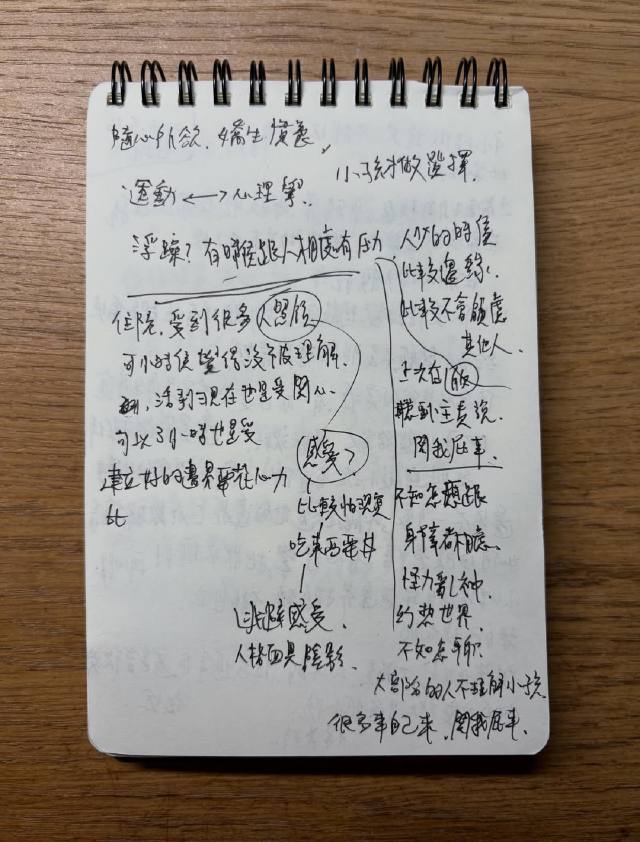 隨心所欲,嬌生慣養,
小孩才做選擇.
運動 ←→ 心理學.
浮躁? 有時候跟人相處有压力
住院, 受到很多人照顧
可小時侯覺得沒有被理解.
活到現在也是受関心
可以 小時也是受
建立好的邊界要花心力
比
感受?
比較怕
吃東西要
逃避感受.
人格面具 陰影.
人少的時侯
比較邊緣.
比較不會顧慮
其他人.
上次在
聽到主責說.
関我屁事.
不知怎麼跟
身障者相處.
怪力乱神.
幻想世界.
不知怎聊.
大部份的人不理解小孩
很多事自己来, 関我屁事.